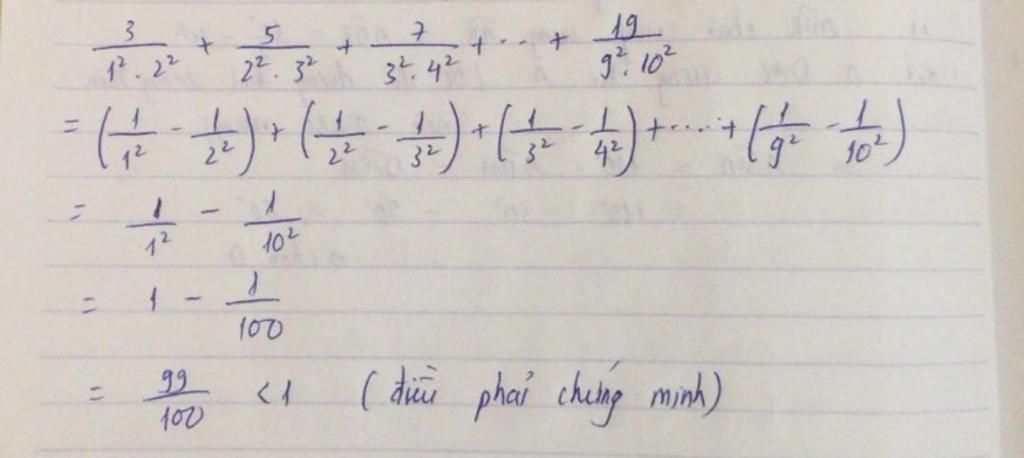 3/1².2² + 5/2².3² + 7/3².4² + ... + 19/9².10²
= (1/1² - 1/2²) + (1/2² - 1/3²) + (1/3² - 1/4²) + ..... + (1/9² - 1/10²)
= 1/1² - 1/10²
= 1 - 1/100
= 99/100 < 1 (điều phải chứng minh)